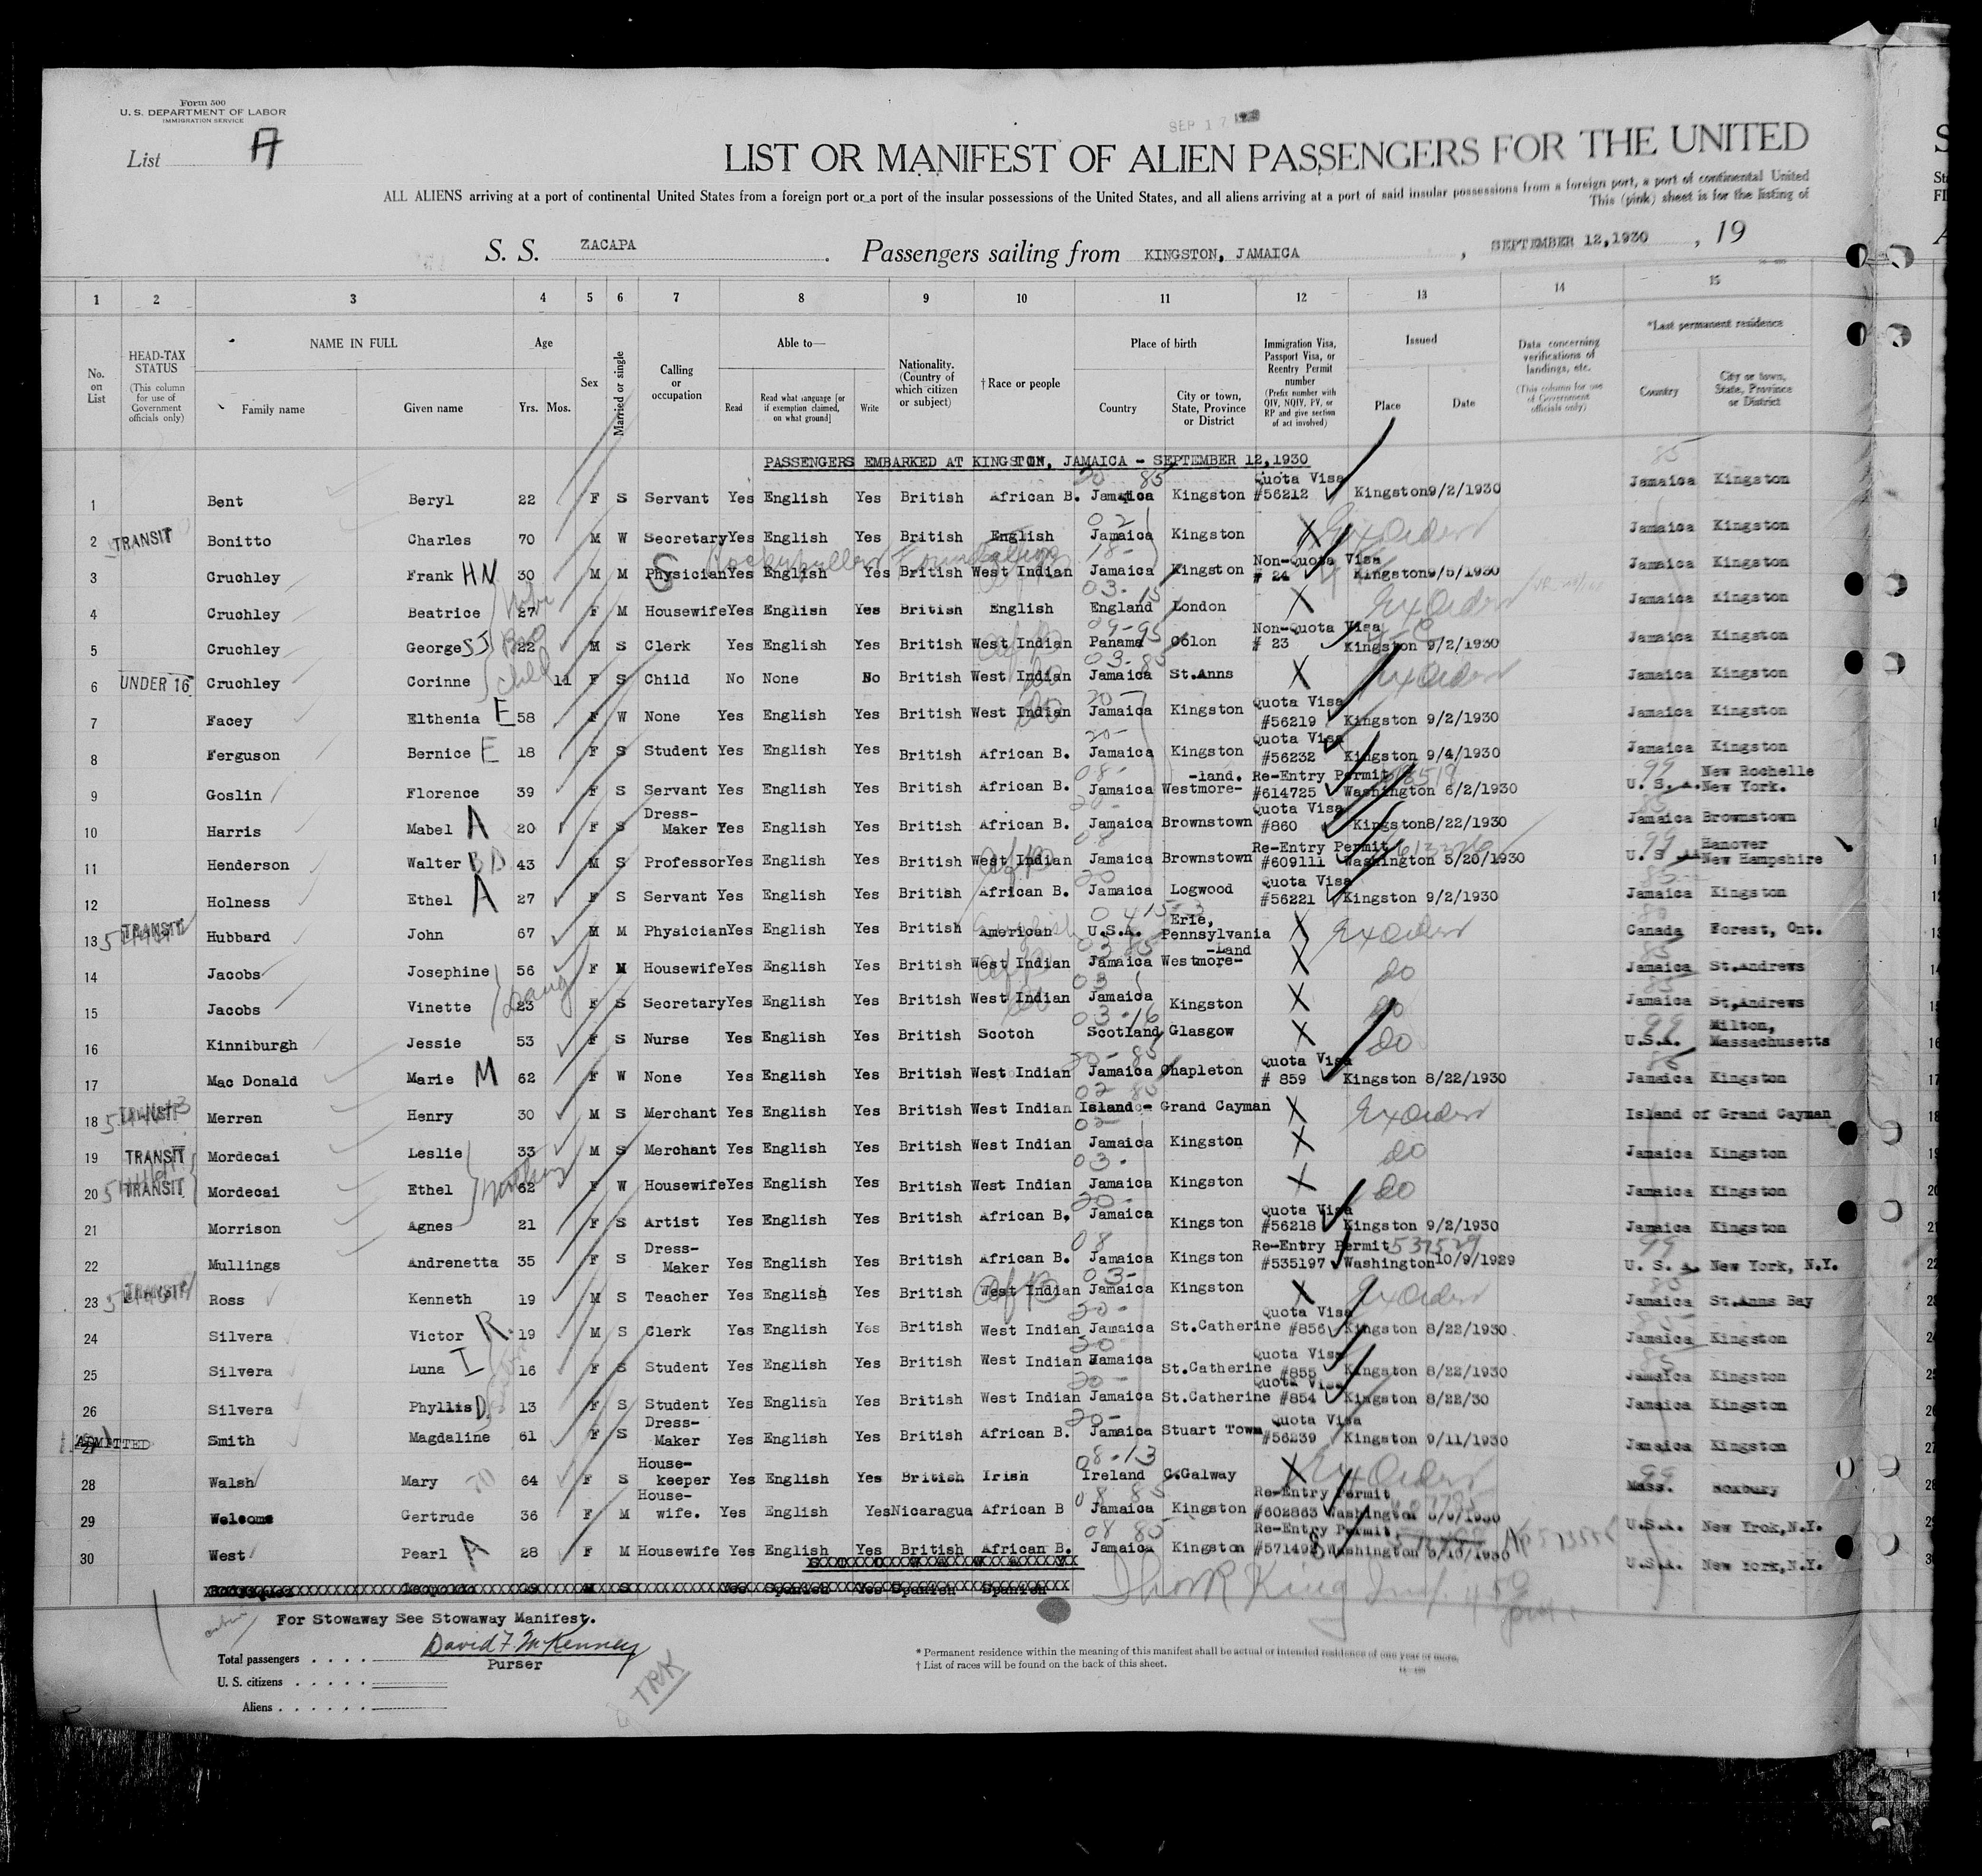 Form 500
U. S. DEPARTMENT OF LABOR
IMMIGRATION SERVICE
List A
SEP 17 1930
LIST OR MANIFEST OF ALIEN PASSENGERS FOR THE UNITED
ALL ALIENS arriving at a port of continental United States from a foreign port or a port of the insular possessions of the United States, and all aliens arriving at a port of said insular possessions from a foreign port, a port of continental United
This (pink) sheet is for the listing of
S. S. ZACAPA. Passengers sailing from KINGSTON, JAMAICA, SEPTEMBER 12,1930, 19
1 2 3 4 5 6 7 8 9 10 11 12 13 14 15
No. on List
HEAD-TAX STATUS (This column for use of Government officials only)
NAME IN FULL
Family name Given name
Age Yrs. Mos.
Sex
Married or single
Calling or occupation
Able to— Read Read what language [or if exemption claimed, on what ground] Write
Nationality. (Country of which citizen or subject)
†Race or people
Place of birth Country City or town, State, Province or District
Immigration Visa, Passport Visa, or Reentry Permit number (Prefix number with QIV, NQIV, PV, or RP and give section of act involved)
Issued Place Date
Data concerning verifications of landings, etc. (This column for use of Government officials only)
*Last permanent residence Country City or town, State, Province or District
PASSENGERS EMBARKED AT KINGSTON, JAMAICA - SEPTEMBER 12,1930
1 Bent Beryl 22 F S Servant Yes English Yes British African B. Jamaica Kingston Quota Visa #56212 Kingston 9/2/1930 Jamaica Kingston
2 TRANSIT Bonitto Charles 70 M W Secretary Yes English Yes British English Jamaica Kingston X Ex Order Jamaica Kingston
3 Cruchley Frank H N 30 M M Physician Yes English Yes British West Indian Jamaica Kingston Non-Quota Visa # 24 Kingston 9/5/1930 Jamaica Kingston
4 Cruchley Beatrice 27 F M Housewife Yes English Yes British English England London X Ex Order Jamaica Kingston
5 Cruchley George SJ 22 M S Clerk Yes English Yes British West Indian Panama Colon Non-Quota Visa # 23 Kingston 9/2/1930 Jamaica Kingston
6 UNDER 16 Cruchley Corinne child 11 F S Child No None No British West Indian Jamaica St.Anns X Ex Order Jamaica Kingston
7 Facey Elthenia E 58 F W None Yes English Yes British West Indian Jamaica Kingston Quota Visa #56219 Kingston 9/2/1930 Jamaica Kingston
8 Ferguson Bernice E 18 F S Student Yes English Yes British African B. Jamaica Kingston Quota Visa #56232 Kingston 9/4/1930 Jamaica Kingston
9 Goslin Florence 39 F S Servant Yes English Yes British African B. Jamaica Westmore-land. Re-Entry Permit #614725 Washington 6/2/1930 U. S. A. New Rochelle New York.
10 Harris Mabel A 20 F S Dress-Maker Yes English Yes British African B. Jamaica Brownstown Quota Visa #860 Kingston 8/22/1930 Jamaica Brownstown
11 Henderson Walter BD 43 M S Professor Yes English Yes British West Indian Jamaica Brownstown Re-Entry Permit #609111 Washington 5/20/1930 U. S. A. Hanover New Hampshire
12 Holness Ethel A 27 F S Servant Yes English Yes British African B. Jamaica Logwood Quota Visa #56221 Kingston 9/2/1930 Jamaica Kingston
13 TRANSIT Hubbard John 67 M M Physician Yes English Yes British American U.S.A. Erie, Pennsylvania X Ex Order Canada Forest, Ont.
14 Jacobs Josephine 56 F M Housewife Yes English Yes British West Indian Jamaica Westmore-land X do Jamaica St.Andrews
15 Jacobs Vinette 23 F S Secretary Yes English Yes British West Indian Jamaica Kingston X do Jamaica St.Andrews
16 Kinniburgh Jessie 53 F S Nurse Yes English Yes British Scotch Scotland Glasgow X do U.S.A. Milton, Massachusetts
17 Mac Donald Marie M 62 F W None Yes English Yes British West Indian Jamaica Chapleton Quota Visa # 859 Kingston 8/22/1930 Jamaica Kingston
18 TRANSIT Merren Henry 30 M S Merchant Yes English Yes British West Indian Island - Grand Cayman X Ex Order Island of Grand Cayman
19 TRANSIT Mordecai Leslie 33 M S Merchant Yes English Yes British West Indian Jamaica Kingston X do Jamaica Kingston
20 TRANSIT Mordecai Ethel mother 62 F W Housewife Yes English Yes British West Indian Jamaica Kingston X do Jamaica Kingston
21 Morrison Agnes 21 F S Artist Yes English Yes British African B. Jamaica Kingston Quota Visa #56218 Kingston 9/2/1930 Jamaica Kingston
22 Mullings Andrenetta 35 F S Dress-Maker Yes English Yes British African B. Jamaica Kingston Re-Entry Permit 537529 #535197 Washington 10/9/1929 U. S. A. New York, N.Y.
23 TRANSIT Ross Kenneth 19 M S Teacher Yes English Yes British West Indian Jamaica Kingston X Ex Order Jamaica St.Anns Bay
24 Silvera Victor R. 19 M S Clerk Yes English Yes British West Indian Jamaica St.Catherine Quota Visa #856 Kingston 8/22/1930 Jamaica Kingston
25 Silvera Luna I 16 F S Student Yes English Yes British West Indian Jamaica St.Catherine Quota Visa #855 Kingston 8/22/1930 Jamaica Kingston
26 Silvera Phyllis D. 13 F S Student Yes English Yes British West Indian Jamaica St.Catherine Quota Visa #854 Kingston 8/22/30 Jamaica Kingston
27 ADMITTED Smith Magdaline 61 F S Dress-Maker Yes English Yes British African B. Jamaica Stuart Town Quota Visa #56239 Kingston 9/11/1930 Jamaica Kingston
28 Walsh Mary 64 F S House-keeper Yes English Yes British Irish Ireland C.Galway X Ex Order Mass. Roxbury
29 Welcome Gertrude 36 F M House-wife. Yes English Yes Nicaragua African B Jamaica Kingston Re-Entry Permit #602863 Washington U.S.A. New Yrok,N.Y.
30 West Pearl A 28 F M Housewife Yes English Yes British African B. Jamaica Kingston Re-Entry Permit #571498 Washington U.S.A. New York,N.Y.
For Stowaway See Stowaway Manifest.
David F. McKenney
Purser
Total passengers
U. S. citizens
Aliens
TRK
* Permanent residence within the meaning of this manifest shall be actual or intended residence of one year or more.
† List of races will be found on the back of this sheet.